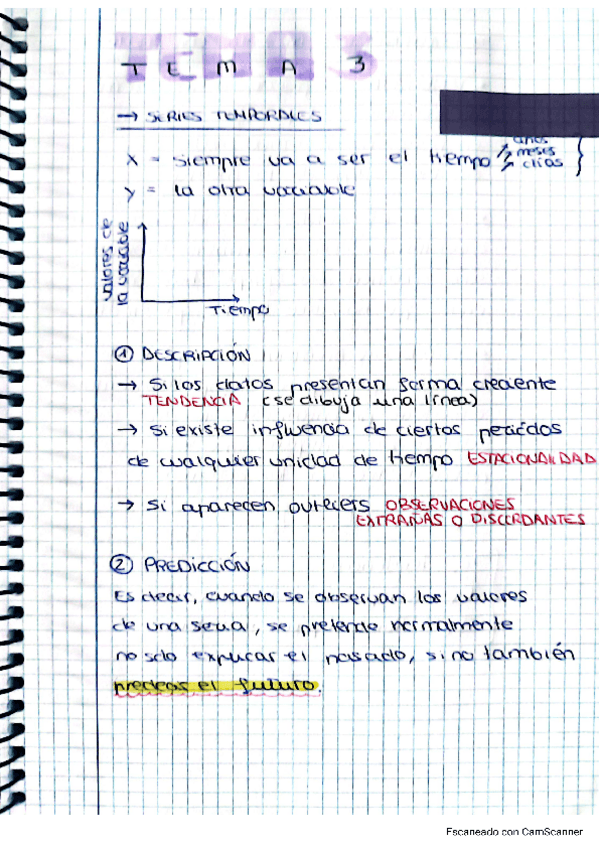 TEMA 3
→ SERIES TEMPORALES
años
X = siempre va a ser el tiempo meses
días
y = la otra variable
valores de
la variable
Tiempo
① DESCRIPCIÓN
→ Si los datos presentan forma creciente
TENDENCIA (se dibuja una línea)
→ Si existe influencia de ciertos periodos
de cualquier unidad de tiempo ESTACIONALIDAD
→ Si aparecen outliers OBSERVACIONES
EXTRAÑAS O DISCORDANTES
② PREDICCIÓN
Es decir, cuando se observan los valores
de una serie, se pretende normalmente
no solo explicar el pasado, si no también
el futuro.
Escaneado con CamScanner